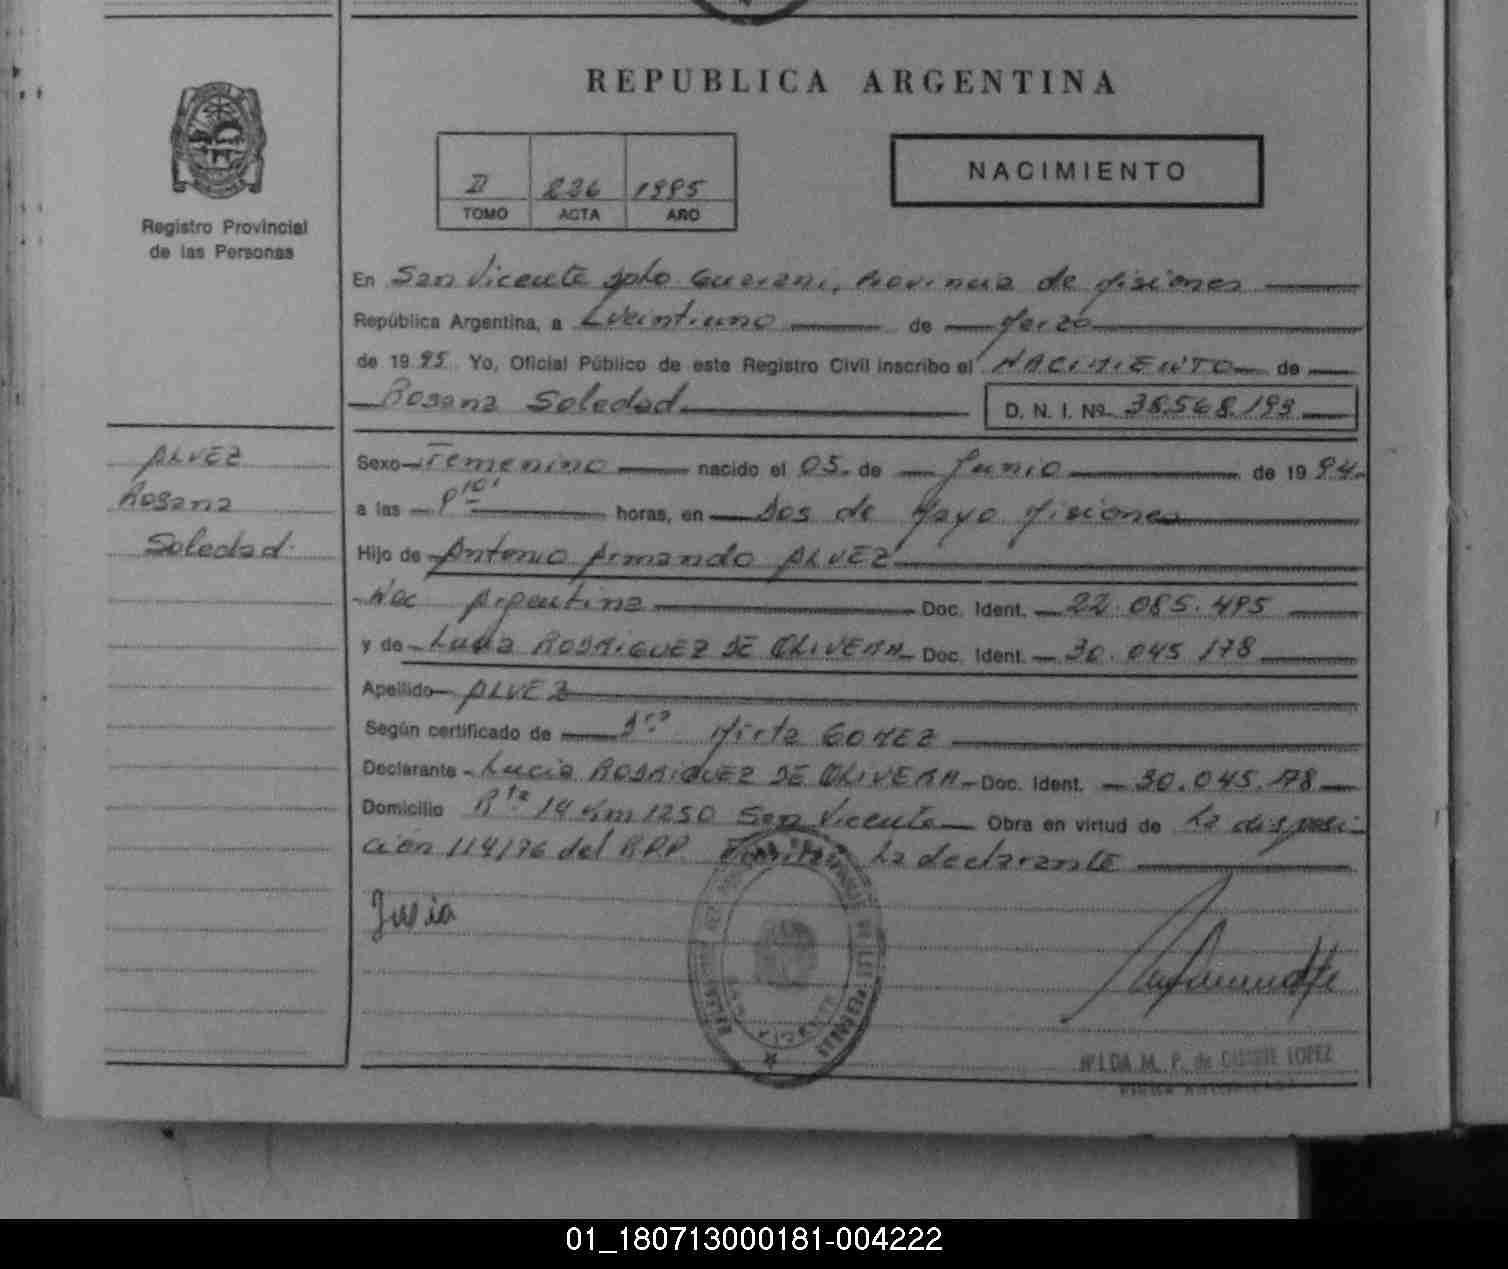 REPUBLICA ARGENTINA
NACIMIENTO
II 236 1995
TOMO ACTA AÑO
Registro Provincial
de las Personas
En San Vicente Dpto Guarani, Provincia de Misiones
República Argentina, a Veintiuno de Marzo
de 1995 Yo, Oficial Público de este Registro Civil inscribo el NACIMIENTO de
Rosana Soledad D. N. I. Nº 38.568.193
ALVEZ
Rosana
Soledad
Sexo Femenino nacido el 05 de Junio de 1994
a las horas, en Dos de Mayo Misiones
Hijo de Antonio Armando ALVEZ
Nac Argentina Doc. Ident. 22.085.495
y de Lucia RODRIGUEZ DE OLIVERA Doc. Ident. 30.045.178
Apellido ALVEZ
Según certificado de Mirta GOMEZ
Declarante Lucia RODRIGUEZ DE OLIVERA Doc. Ident. 30.045.178
Domicilio Rta 14 Km 1250 San Vicente Obra en virtud de La disposi-
ción 114/76 del R.P.P. La declarante
M. P. de LOPEZ
01_180713000181-004222